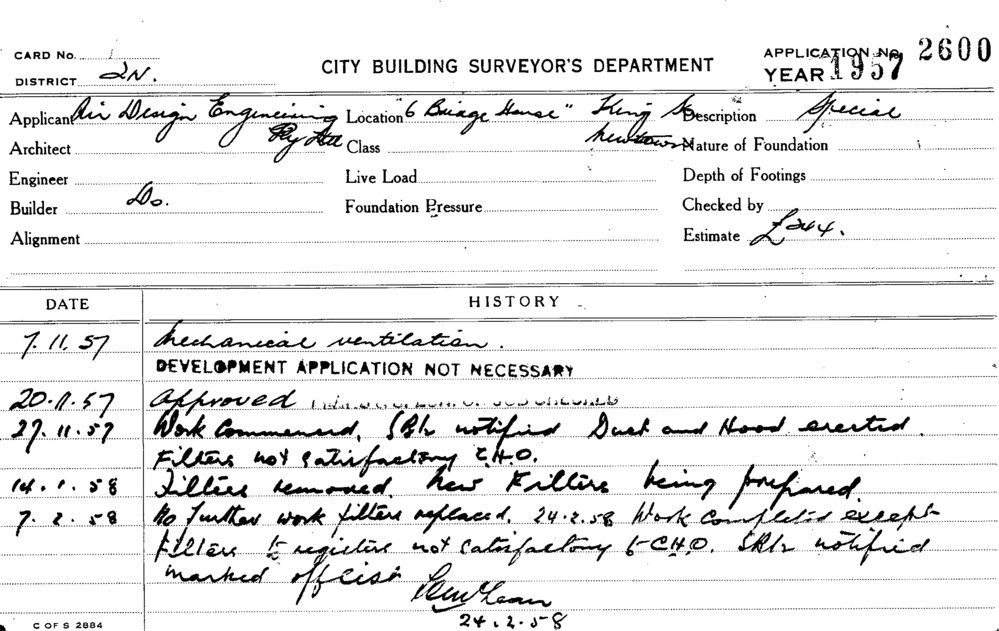 CARD No. 1
DISTRICT 2N.
CITY BUILDING SURVEYOR'S DEPARTMENT
APPLICATION No. 2600
YEAR 1957
Applicant Air Design Engineering Pty Ltd
Location "6 Bridge House" King St Newtown
Description Special
Architect
Class
Nature of Foundation
Engineer
Live Load
Depth of Footings
Builder Do.
Foundation Pressure
Checked by
Alignment
Estimate £244.
DATE HISTORY
7.11.57 Mechanical ventilation.
DEVELOPMENT APPLICATION NOT NECESSARY
20.11.57 Approved
27.11.57 Work Commenced. notified Duct and Hood erected.
Filters not satisfactory C.H.O.
14.1.58 Filters removed. New Filters being prepared.
7.2.58 No further work filters replaced. 24.2.58 Work Completed except
filters & registers not satisfactory to C.H.O. notified
marked off list
24.2.58
C OF S 2884